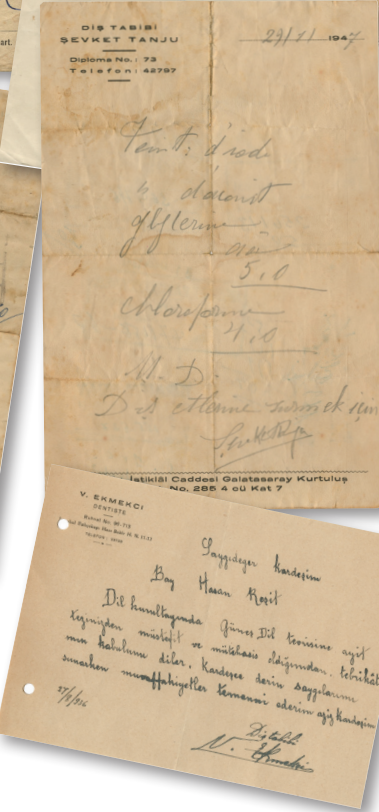 art.
DİŞ TABİBİ
ŞEVKET TANJU
Diploma No.: 73
Telefon: 42797
29/11 1947
Teint: d'iode
" d'aconit
glycerine
āā
5,0
chloroforme
4,0
M. D.
Diş etlerine sürmek için
İstiklâl Caddesi Galatasaray Kurtuluş
No. 285 4 cü Kat 7
V. EKMEKCİ
DENTISTE
Saygıdeğer kardeşim
Bay Hasan Reşit
Dil kurultayında Güneş Dil teorisine ayit
tezinizden müstefit ve mütehasis olduğumdan, tebrikât
mın kabulunu diler, kardeşce derin saygolarımı
sunarken muvaffakiyetler temennisi ederim aziz kardeşim
Diştabibi
V. Ekmekci